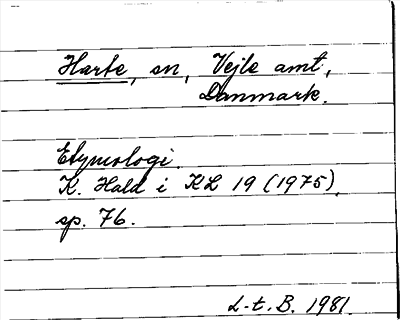 Harte, sn, Vejle amt,
Danmark.
Etymologi.
K. Hald i KL 19 (1975),
sp. 76.
L-t. B. 1981.